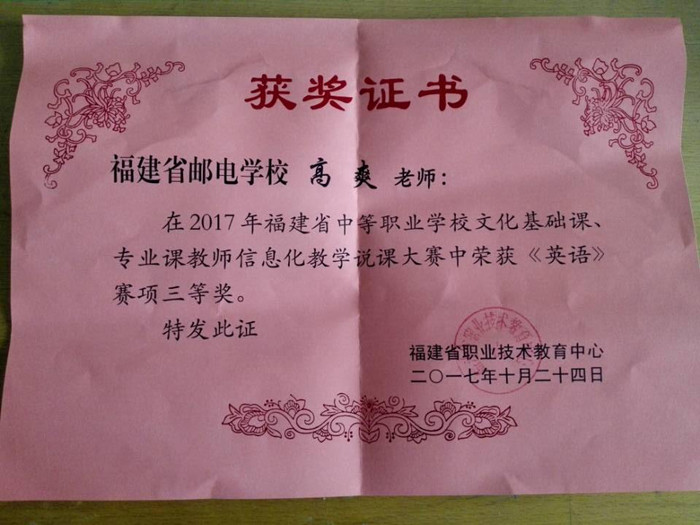 获奖证书
福建省邮电学校 高爽 老师：
在2017年福建省中等职业学校文化基础课、
专业课教师信息化教学说课大赛中荣获《英语》
赛项三等奖。
特发此证
福建省职业技术教育中心
二〇一七年十月二十四日